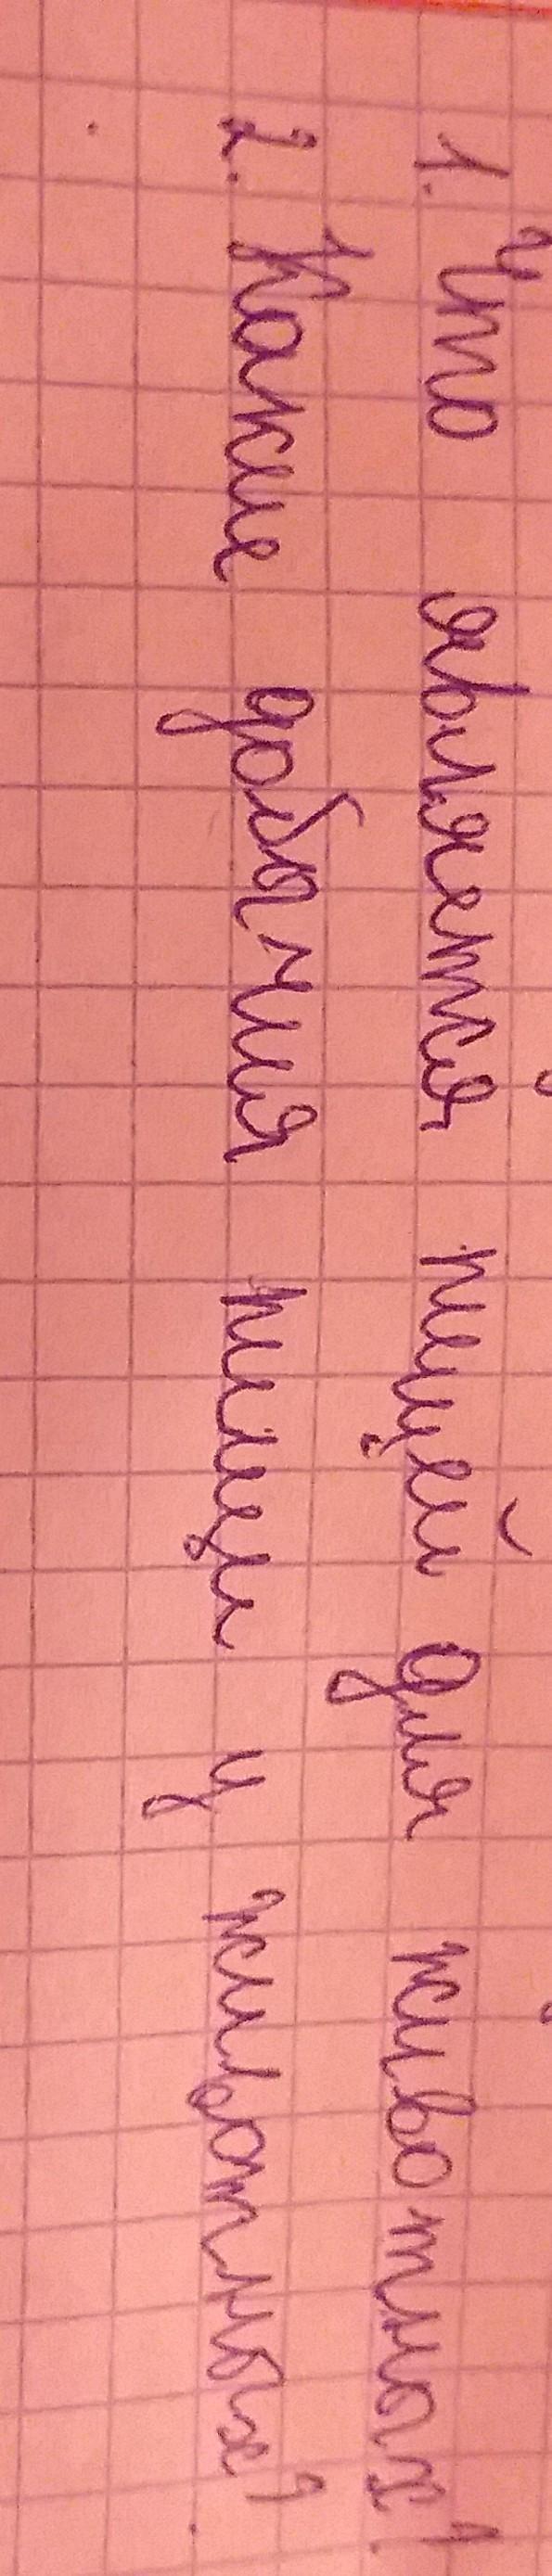 1. Что является пищей для животных?
2. Какие добычия пищи у животных?